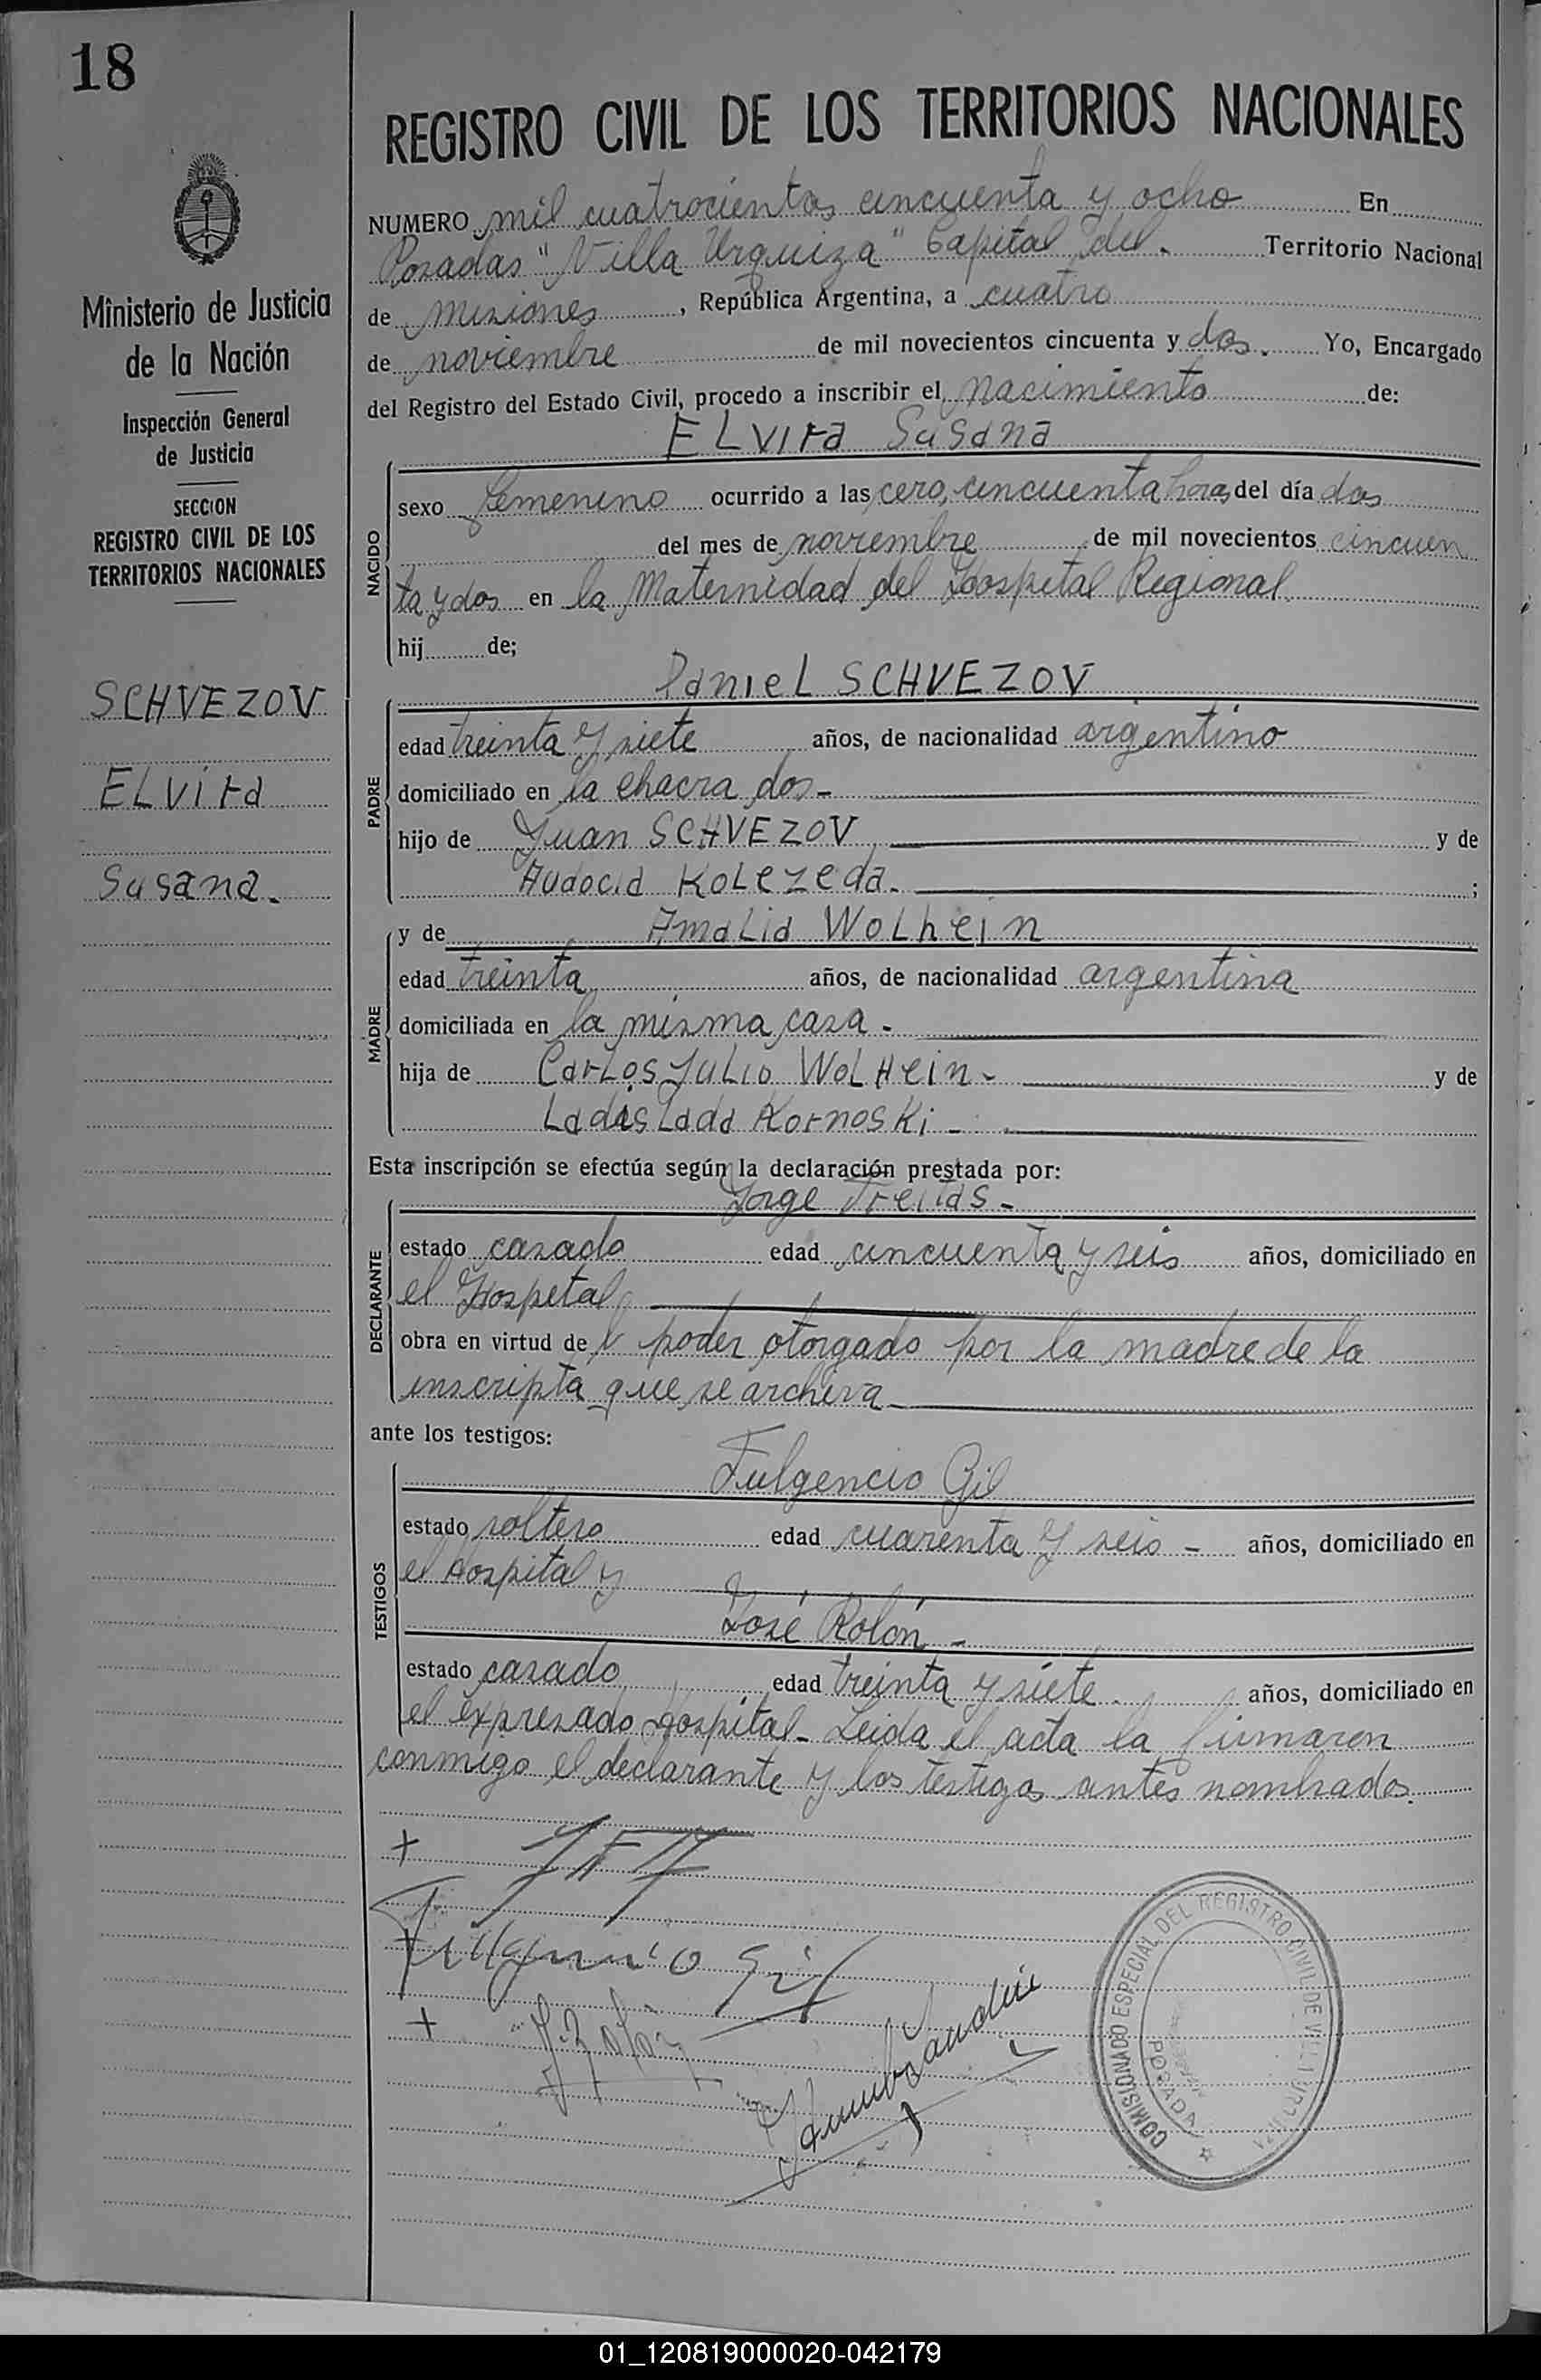 18
REGISTRO CIVIL DE LOS TERRITORIOS NACIONALES
Ministerio de Justicia
de la Nación
Inspección General
de Justicia
SECCION
REGISTRO CIVIL DE LOS
TERRITORIOS NACIONALES
SCHVEZOV
ELVira
Susana.
NUMERO mil cuatrocientos cincuenta y ocho En
Posadas "Villa Urquiza" Capital del. Territorio Nacional
de Misiones, República Argentina, a cuatro
de noviembre de mil novecientos cincuenta y dos. Yo, Encargado
del Registro del Estado Civil, procedo a inscribir el nacimiento de:
ELvira Susana
NACIDO
sexo femenino ocurrido a las cero, cincuenta horas del día dos
del mes de noviembre de mil novecientos cincuen
ta y dos en la Maternidad del Hospital Regional.
hij de;
DanieL SCHVEZOV
PADRE
edad treinta y siete años, de nacionalidad argentino
domiciliado en la chacra dos-
hijo de Juan SCHVEZOV y de
Audocia KoLezeda. ;
MADRE
y de AmaLia WoLhein
edad treinta años, de nacionalidad argentina
domiciliada en la misma casa.
hija de CarLos JuLio WoLHein- y de
LadisLada KornosKi-
Esta inscripción se efectúa según la declaración prestada por:
Jorge Freitas-
DECLARANTE
estado casado edad cincuenta y seis años, domiciliado en
el Hospital
obra en virtud del poder otorgado por la madre de la
inscripta que se archiva-
ante los testigos:
TESTIGOS
Fulgencio Gil
estado soltero edad cuarenta y seis - años, domiciliado en
el Hospital y
José Rolón-
estado casado edad treinta y siete. años, domiciliado en
el expresado Hospital- Leida el acta la firmaron
conmigo el declarante y los testigos antes nombrados.
+
+ Fulgencio Gil
+ J. Rolón
COMISIONADO ESPECIAL DEL REGISTRO CIVIL DE VILLA URQUIZA
POSADAS
01_120819000020-042179